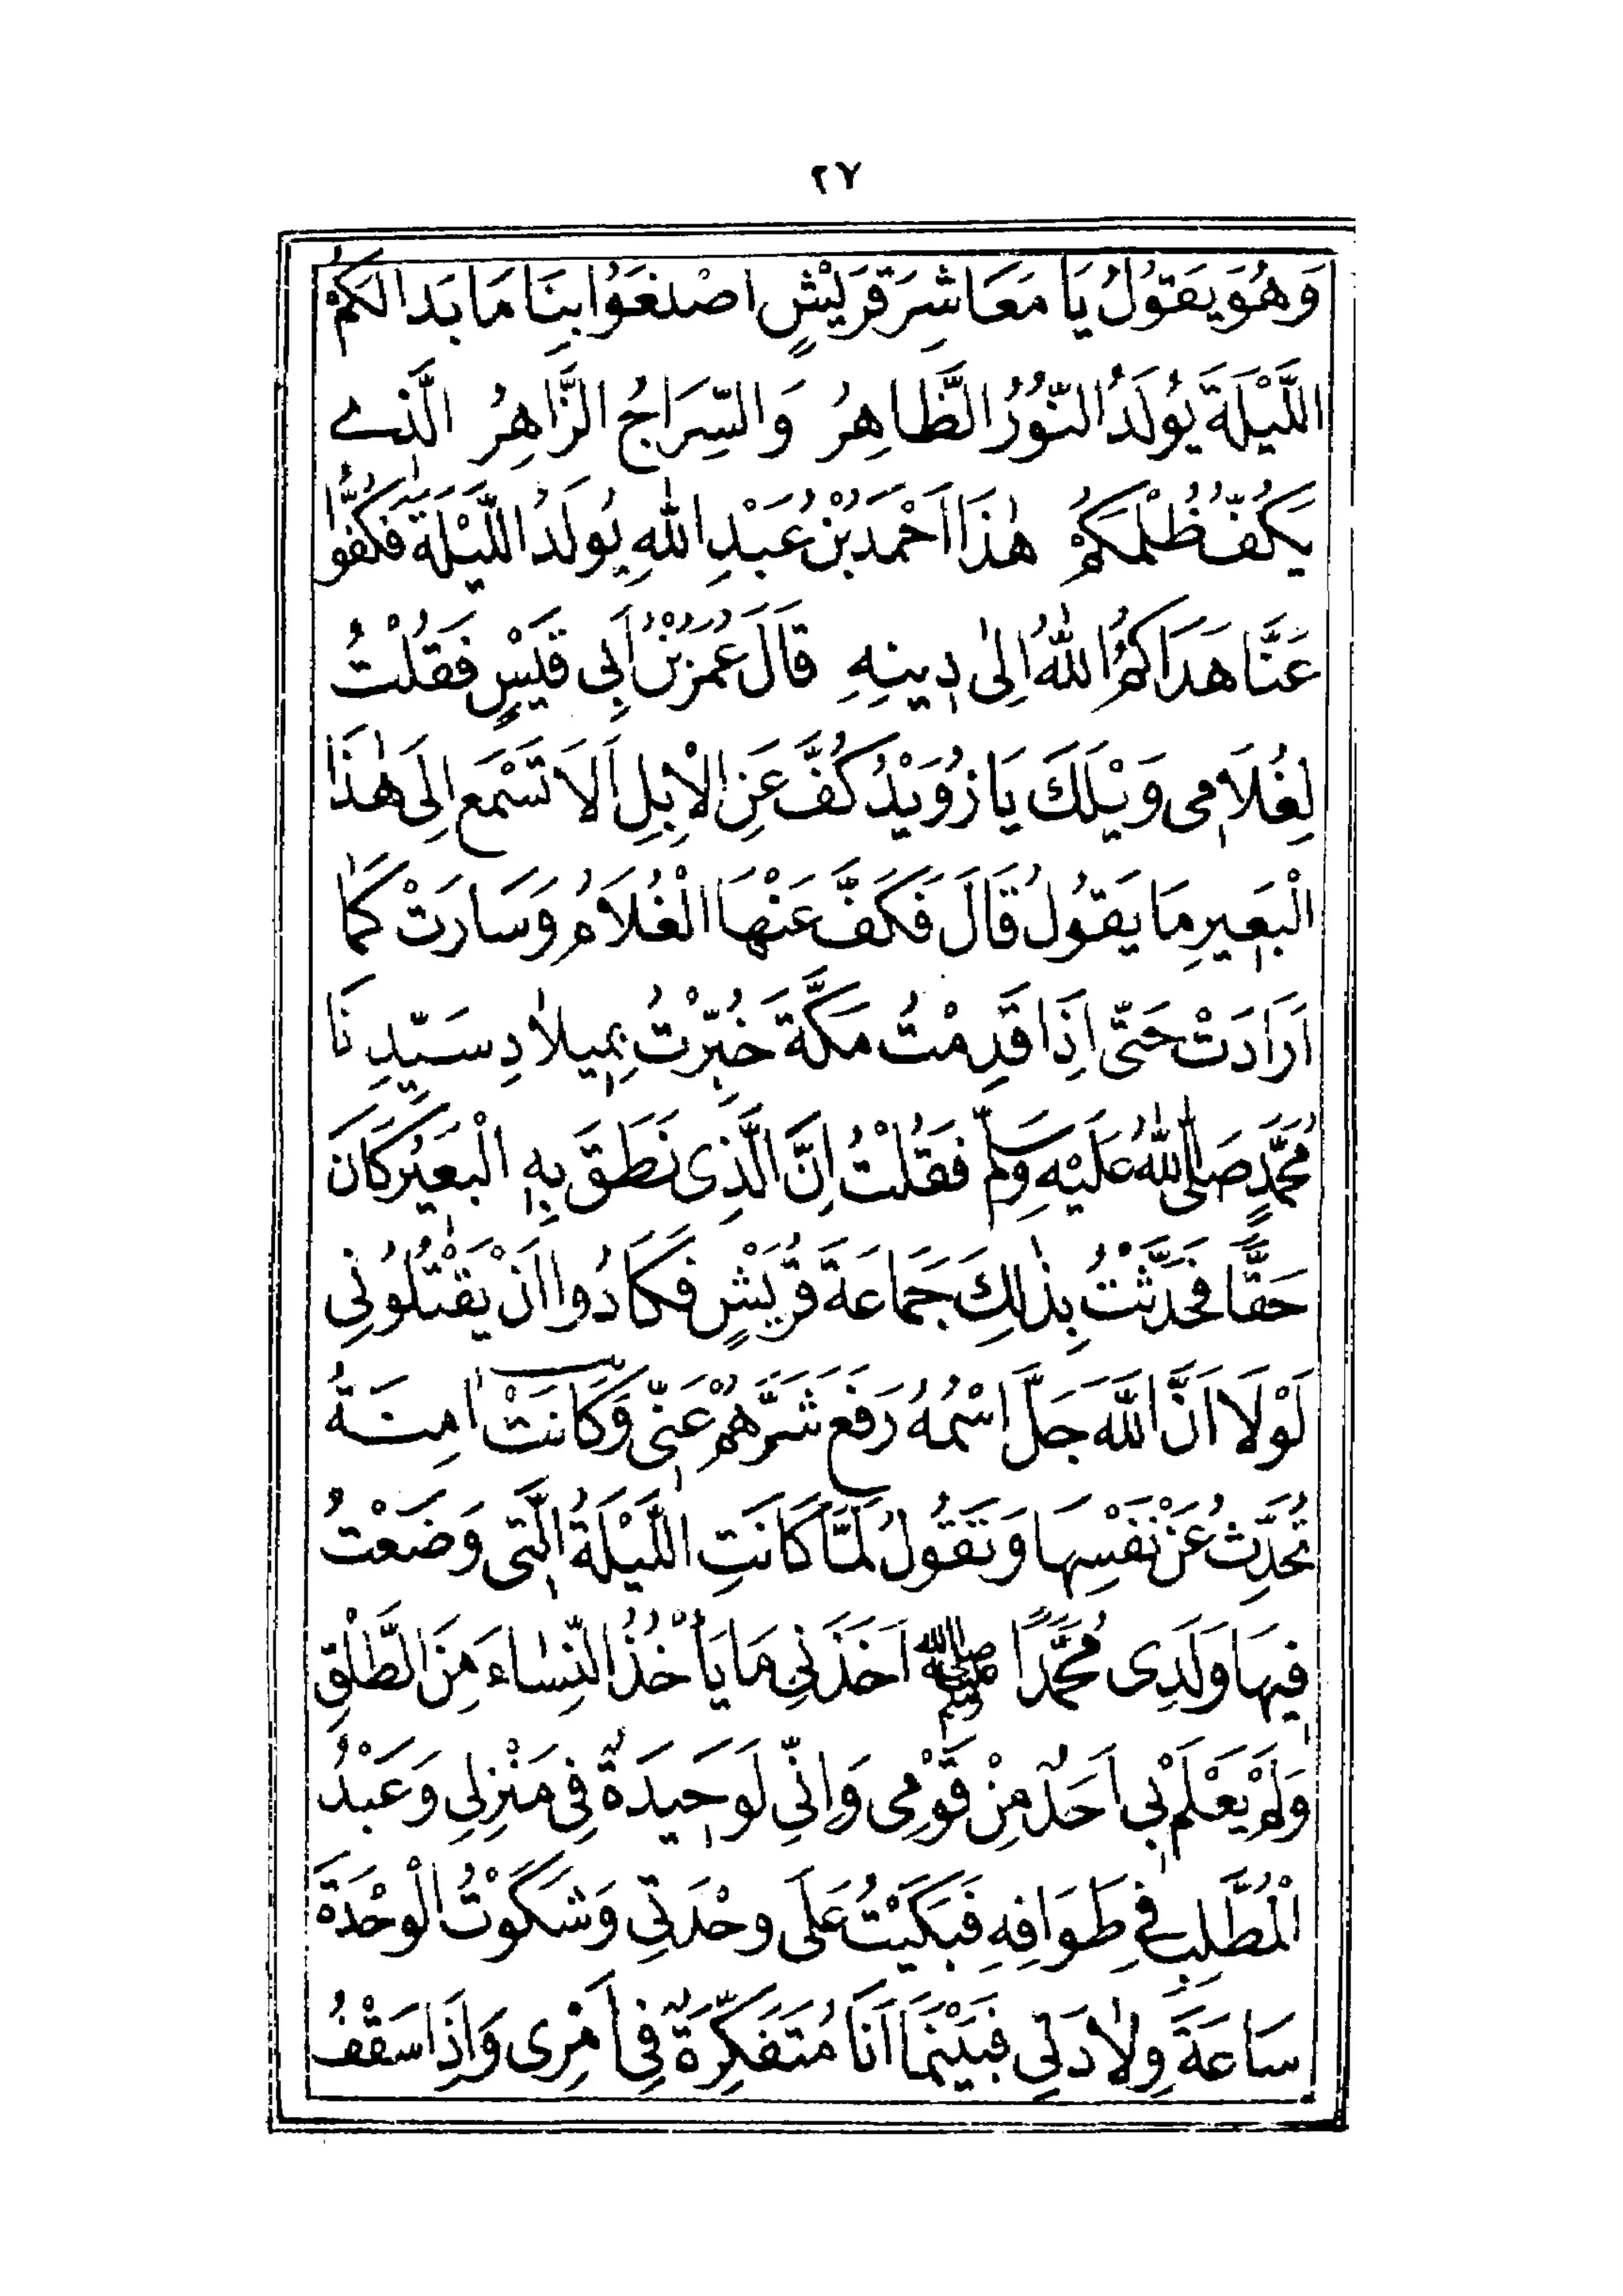 ٢٧
وَهُوَ يَقُوْلُ يَا مَعَاشِرَ قُرَيْشٍ اصْنَعُوا بِنَا مَا بَدَالَكُمْ
اللَّيْلَةَ يُولَدُ النُّوْرُ الظَّاهِرُ وَالسِّرَاجُ الزَّاهِرُ الَّذِے
يَكُفُّ ظُلْمَكُمْ هٰذَا اَحْمَدُ بْنُ عَبْدِ اللهِ يُولَدُ اللَّيْلَةَ فَكُفُّوا
عَنَّا هَدَاكُمُ اللهُ اِلٰى دِينِهِ قَالَ عُمَرُ بْنُ اَبِي قَيْسٍ فَقُلْتُ
لِغُلَامِي وَيْلَكَ يَا زُوَيْدُ كُفَّ عَنِ الْاِبِلِ اَلَا تَسْمَع اِلَى هٰذَا
الْبَعِيرِ مَا يَقُولُ قَالَ فَكَفَّ عَنْهَا الْغُلَامُ وَسَارَتْ كَمَا
اَرَادَتْ حَتّٰى اِذَا قَدِمْتُ مَكَّةَ خُبِّرْتُ بِمِيلَادِ سَيِّدِنَا
مُحَمَّدٍ صَلَّى اللهُ عَلَيْهِ وَسَلَّمَ فَقُلْتُ اِنَّ الَّذِى نَطَقَ بِهِ الْبَعِيْرُ كَانَ
حَقًّا فَحَدَّثْتُ بِذٰلِكَ جَمَاعَةَ قُرَيْشٍ فَكَادُوا اَنْ يَقْتُلُونِي
لَوْلَا اَنَّ اللّٰهَ جَلَّ اسْمُهُ رَفَعَ شَرَّهُمْ عَنِّي وَكَانَتْ اٰمِنَةُ
تُحَدِّثُ عَنْ نَفْسِهَا وَتَقُولُ لَمَّا كَانَتِ اللَّيْلَةُ الَّتِي وَضَعْتُ
فِيهَا وَلَدِى مُحَمَّدًا ﷺ اَخَذَنِي مَا يَأْخُذُ النِّسَاءَ مِنَ الطَّلْقِ
وَلَمْ يَعْلَمْ بِي اَحَدٌ مِنْ قَوْمِي وَاِنِّي لَوَحِيدَةٌ فِي مَنْزِلِي وَعَبْدُ
الْمُطَّلِبِ فِي طَوَافِهِ فَبَكَيْتُ عَلَى وِحْدَتِي وَشَكَوْتُ الْوِحْدَةَ
سَاعَةَ وِلَادَتِي فَبَيْنَمَا اَنَا مُتَفَكِّرَةٌ فِي اَمْرِى وَاِذَا سَقْفُ